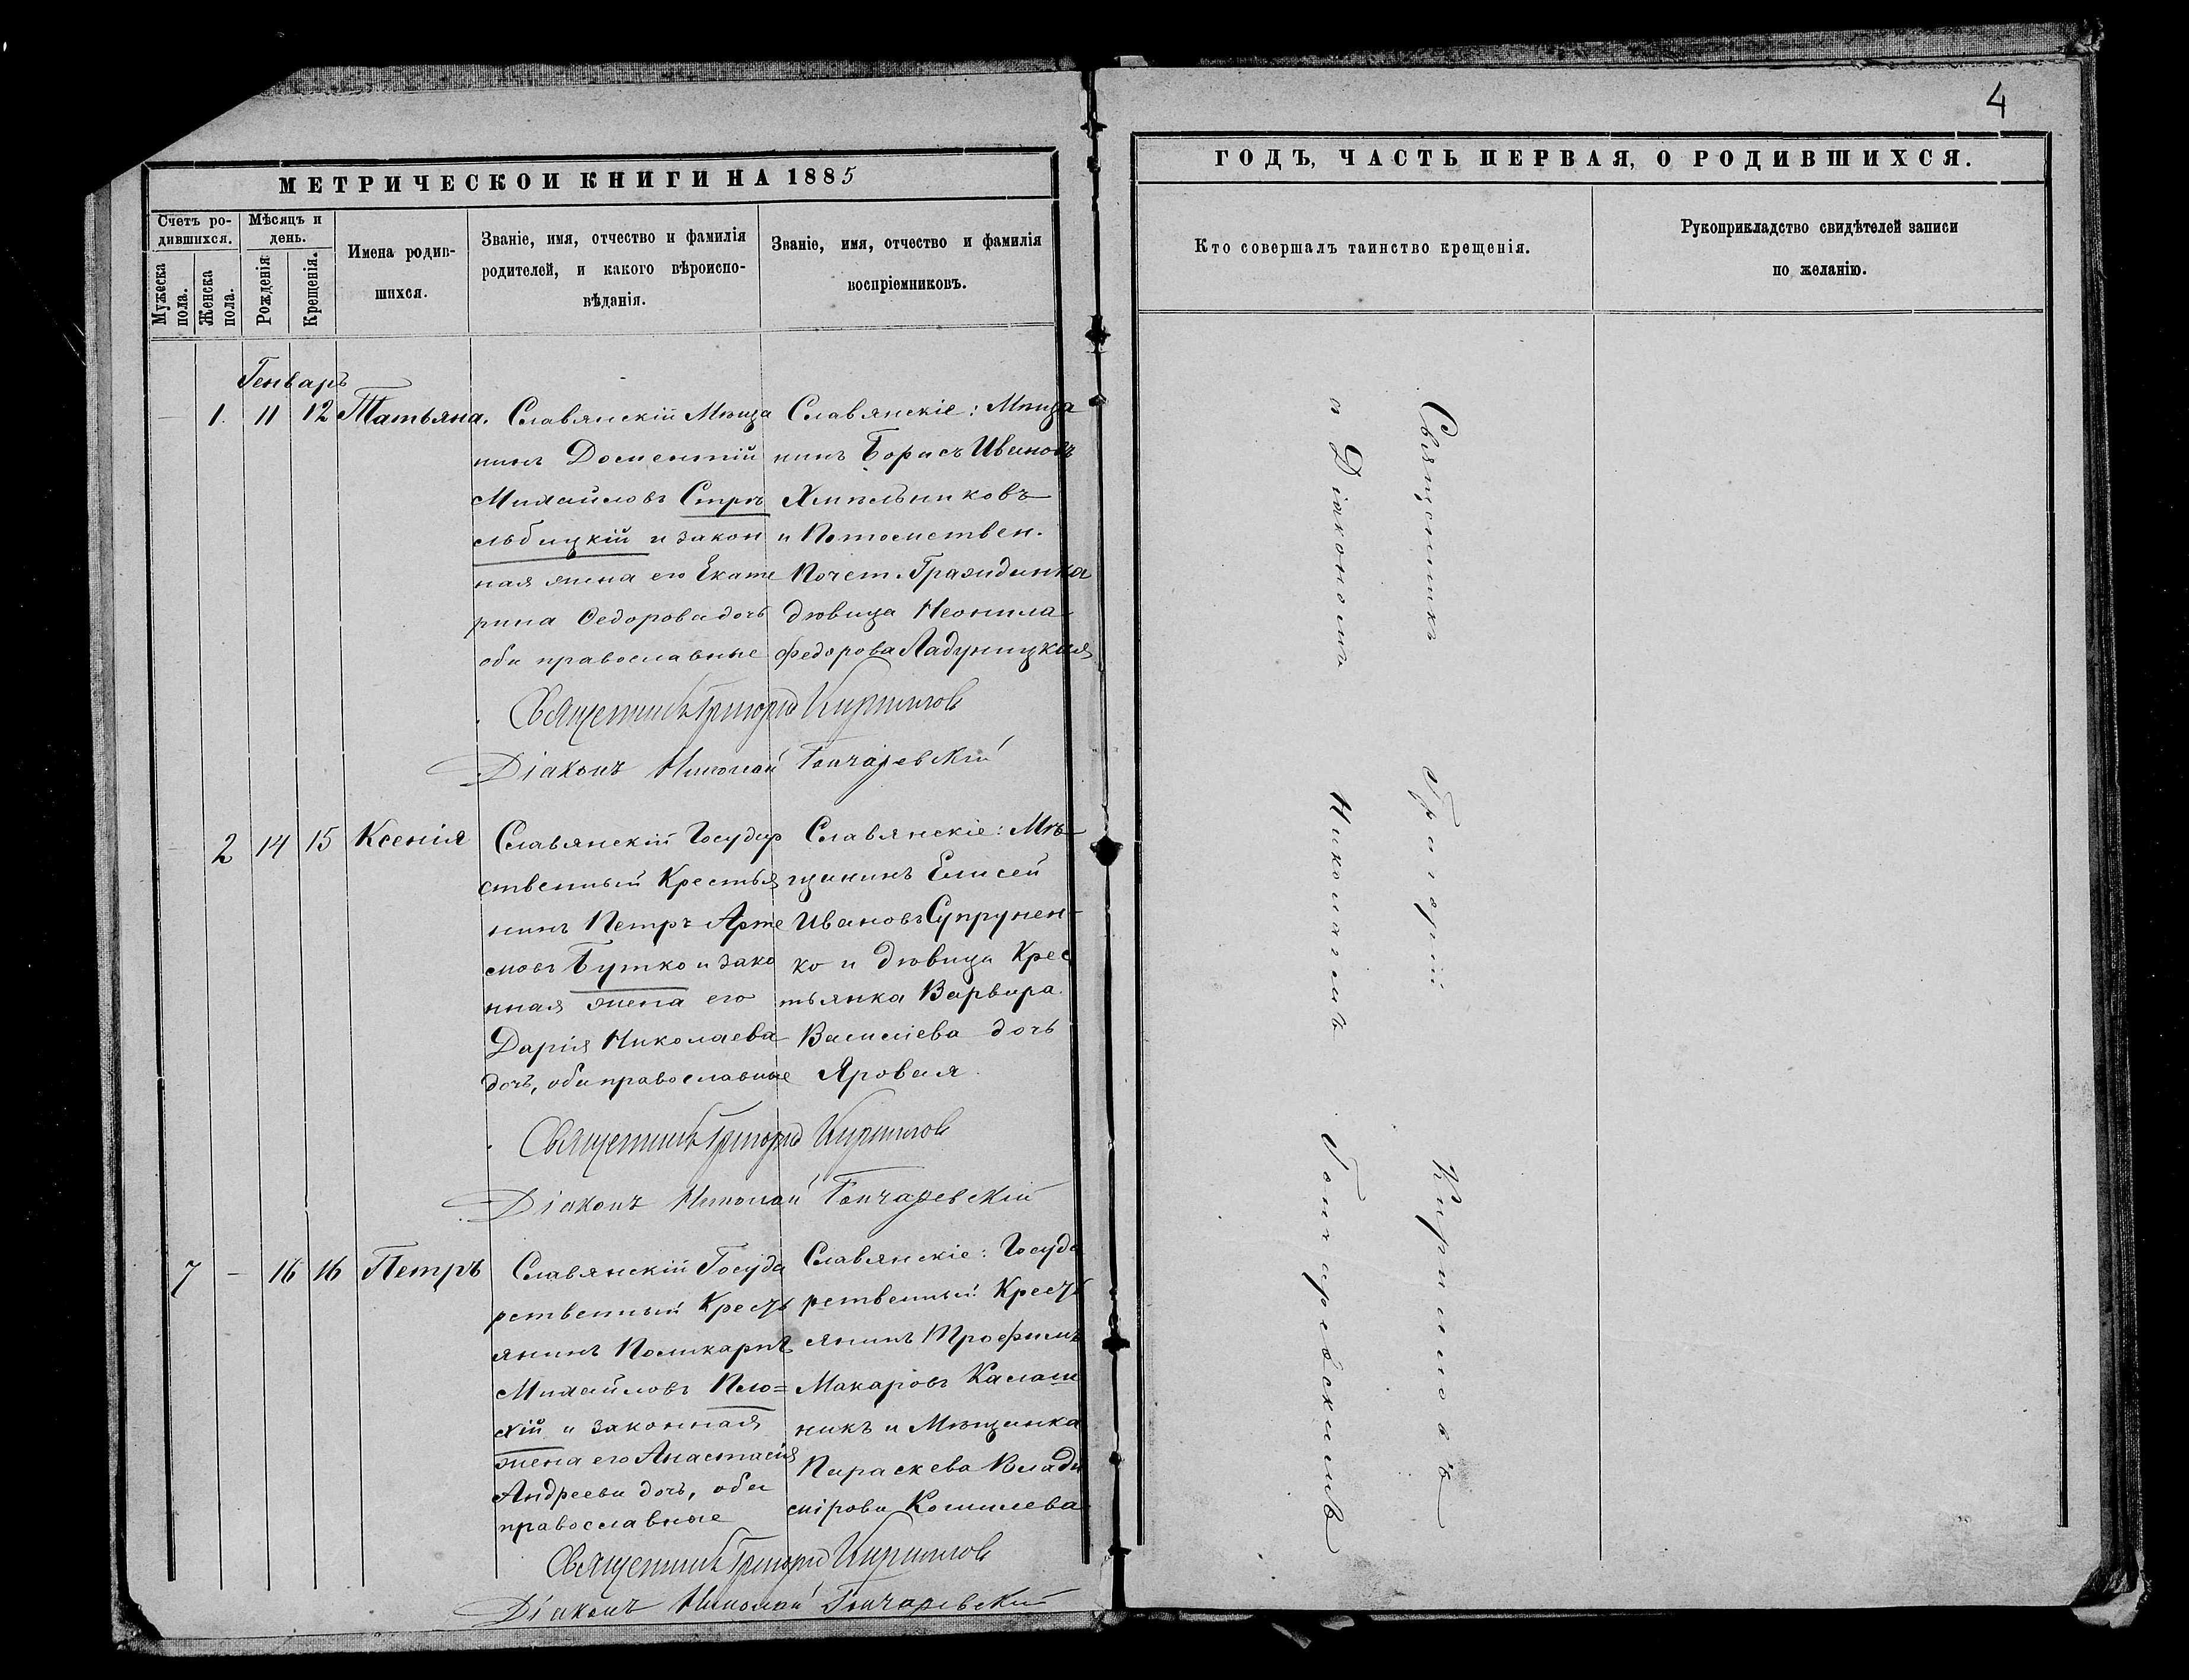 4
МЕТРИЧЕСКОЙ КНИГИ НА 1885
ГОДЪ, ЧАСТЬ ПЕРВАЯ, О РОДИВШИХСЯ.
Счетъ ро-
дившихся.
Мужеска
пола.
Женска
пола.
Мѣсяцъ и
день.
Рожденія
Крещенія.
Имена родив-
шихся.
Званіе, имя, отчество и фамилія
родителей, и какого вѣроиспо-
вѣданія.
Званіе, имя, отчество и фамилія
воспріемниковъ.
Кто совершалъ таинство крещенія.
Рукоприкладство свидѣтелей записи
по желанію.
Генварь
1. 11 12 Татьяна.
Славянскій Мѣща
нинъ Дометій
Михайловъ Стрѣ
льбицкій и закон
ная жена его Екате
рина Ѳедорова дочь
оба православные
Славянскіе: Мѣща
нинъ Борисъ Ивановъ
Хмѣльниковъ
и Потомствен.
Почет. Гражданка
дѣвица Неонила
Федорова Ладуницкая
Священникъ Григорій Кирилловъ
Діаконъ Николай Гончаревскій
2 14 15 Ксенія
Славянскій Государ
ственный Крестья
нинъ Петръ Арте
мовъ Бутко и зако
нная жена его
Дарія Николаева
дочь, оба православные
Славянскіе: Мѣ-
щанинъ Елисей
Ивановъ Супрунен-
ко и дѣвица Крес
тьянка Варвара
Василіева дочь
Яровая.
Священникъ Григорій Кирилловъ
Діаконъ Николай Гончаревскій
7 – 16 16 Петръ
Славянскій Госуда
рственный Кресть
янинъ Поликарпъ
Михайловъ Пло=
хій и законная
жена его Анастасія
Андреева дочь, оба
православные
Славянскіе: Госуда
рственный Кресть
янинъ Трофимъ
Макаровъ Калаш
никъ и Мѣщанка
Параскева Влади
мірова Кошелева
Священникъ Григорій Кирилловъ
Діаконъ Николай Гончаревскій
Священникъ Григорій Кирилловъ
и Діакономъ Николаемъ Гончаревскимъ